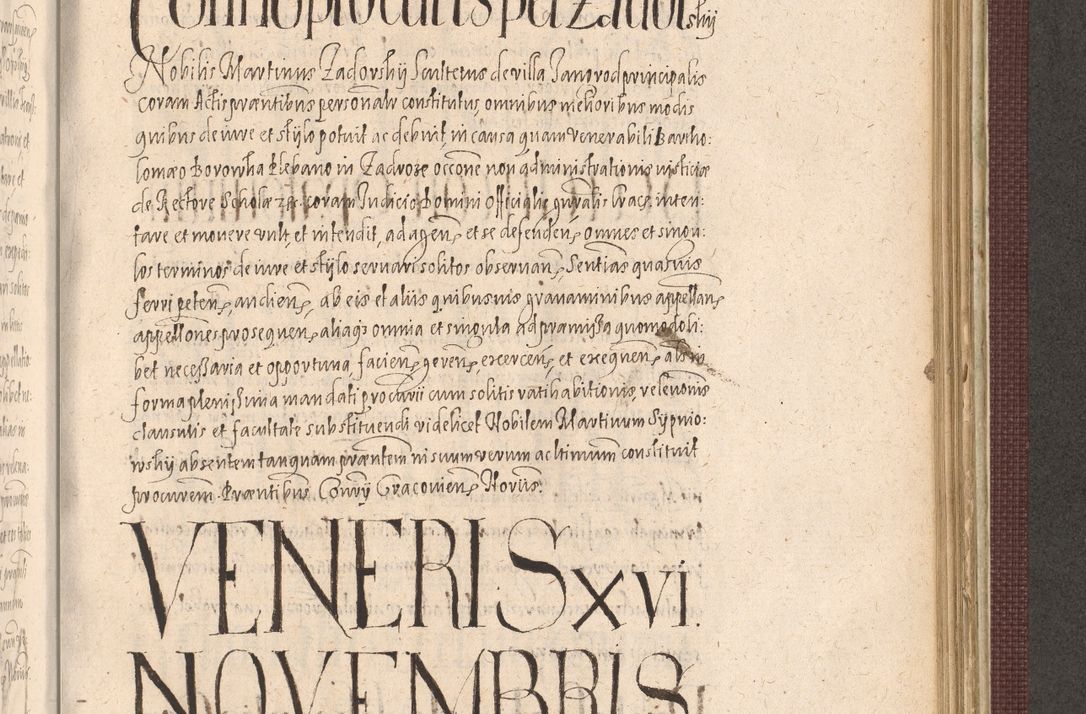 Constitoprocuris per Zador shij
Nobilis Martinus Zadorshij Scultetus de villa Jangrod principalis
coram Actis præntibus personalr constitutus, omnibus melioribus modis
quibus de iure et stylo potuit ac debuit, in causa quam venerabili Bartho:
lomæo Borowka Plebano in Zadroze occone non administrationis iusticiæ
de Rectore Scholæ coram Judicio Domini Officialis gnralis Crac: inten:
tare et movere vult, et intendit, ad agen, et se defenden, omnes et singu:
los terminos de iure et stylo servari solitos observan, Sentias quasuis
ferri peten, audien, ab eis et aliis quibusuis gravaminibus appellan
appellones prosequen, aliaqs omnia et singula ad præmissa quomodoli:
bet necessaria et opportuna, facien, geren, exercen, et exequen,
forma plenissima mandati procurii cum solitis ratihabitionis, relevonis
clausulis et facultate substituendi videlicet Nobilem Martinum Sypnio:
wshij absentem tanquam præntem in suum verum ac ltimum constituit
procurem. Præntibus, Conrij Cracovien, Norius.
VENERIS XVI.
NOVEMBRIS